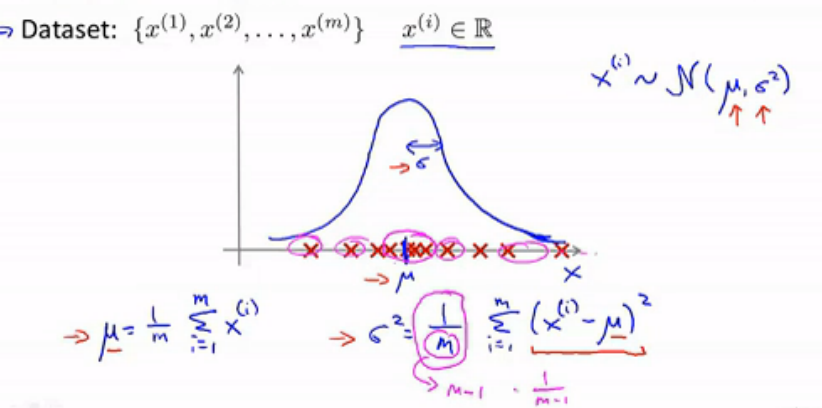 → Dataset: {x^(1), x^(2), ..., x^(m)} x^(i) ∈ ℝ
x^(i) ~ N(μ, σ²)
→ σ
→ μ
x
→ μ = 1/m Σ_{i=1}^{m} x^(i) → σ² = 1/m Σ_{i=1}^{m} (x^(i) - μ)²
→ m-1 1/(m-1)